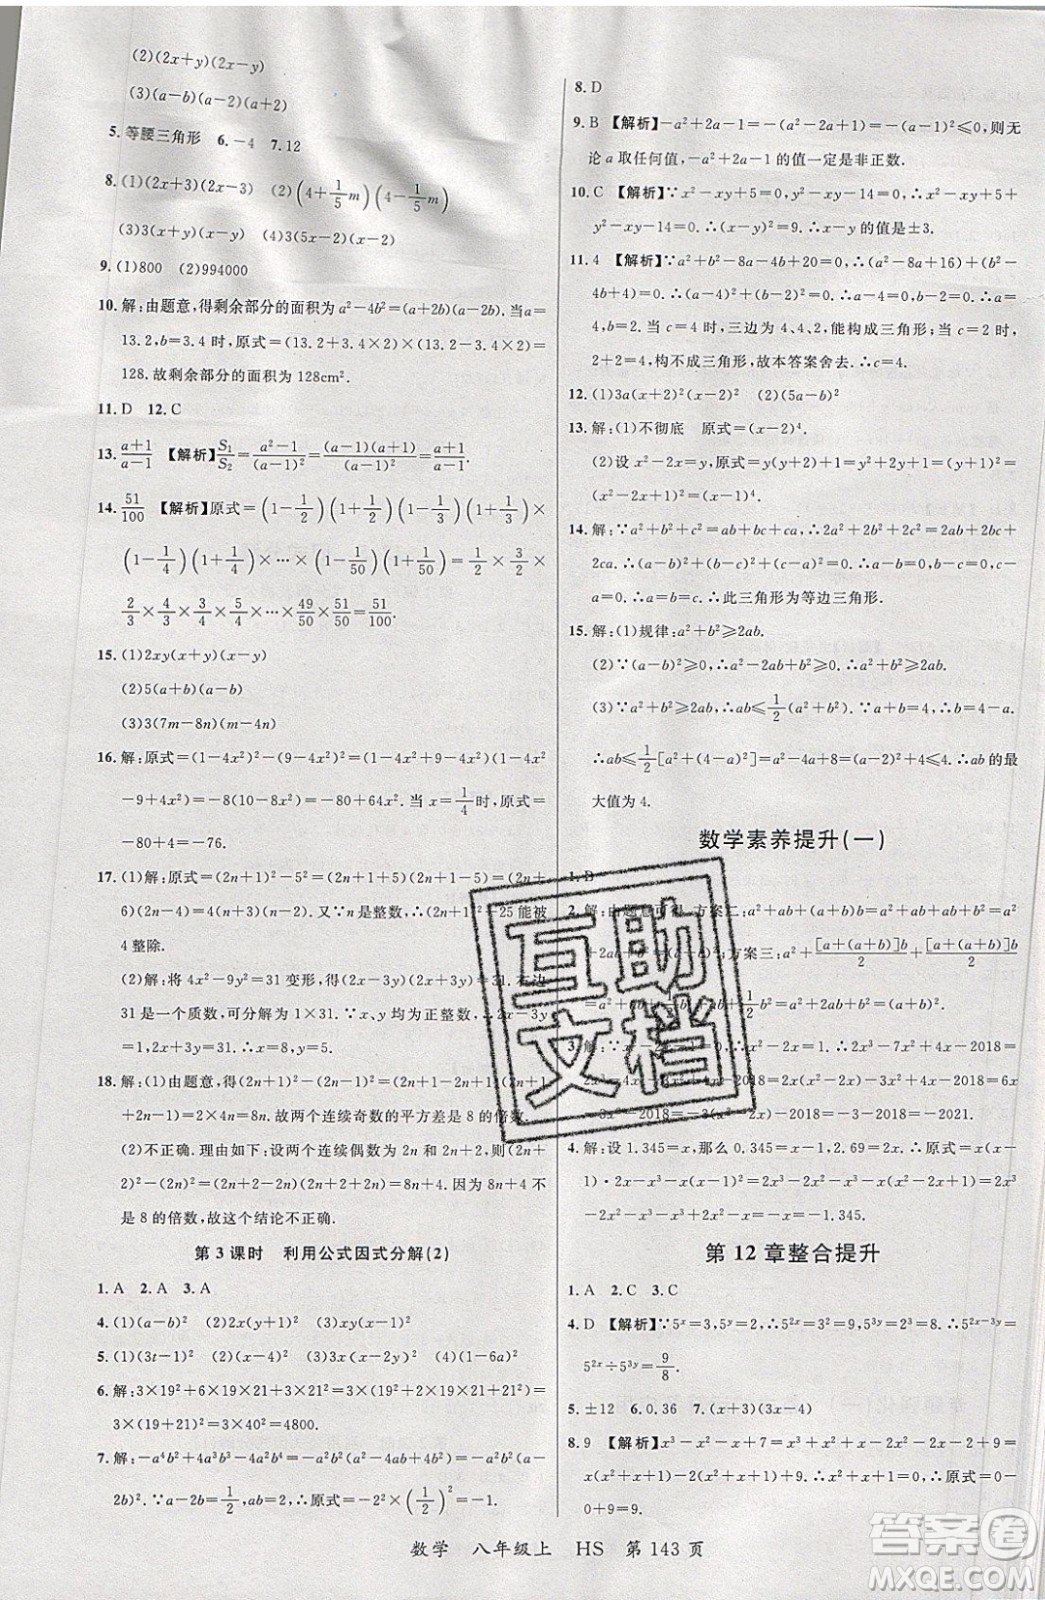 (2)(2x+y)(2x-y)
(3)(a-b)(a-2)(a+2)
5. 等腰三角形 6. -4 7. 12
8. (1)(2x+3)(2x-3) (2)(4+1/5m)(4-1/5m)
(3)3(x+y)(x-y) (4)3(5x-2)(x-2)
9. (1)800 (2)994000
10. 解:由题意,得剩余部分的面积为 a²-4b²=(a+2b)(a-2b). 当 a=
13.2,b=3.4 时,原式=(13.2+3.4×2)(13.2-3.4×2)=
128. 故剩余部分的面积为 128cm².
11. D 12. C
13. (a+1)/(a-1) 【解析】S₁/S₂=(a²-1)/(a-1)²=(a-1)(a+1)/(a-1)²=(a+1)/(a-1).
14. 51/100 【解析】原式=(1-1/2)(1+1/2)(1-1/3)(1+1/3)×
(1-1/4)(1+1/4)×…×(1-1/50)(1+1/50)=1/2×3/2×
2/3×4/3×3/4×5/4×…×49/50×51/50=51/100.
15. (1)2xy(x+y)(x-y)
(2)5(a+b)(a-b)
(3)3(7m-8n)(m-4n)
16. 解:原式=(1-4x²)²-(9-4x²)²=(1-4x²+9-4x²)(1-4x²
-9+4x²)=-8(10-8x²)=-80+64x². 当 x=1/4时,原式=
-80+4=-76.
17. (1)解:原式=(2n+1)²-5²=(2n+1+5)(2n+1-5)=(2n+
6)(2n-4)=4(n+3)(n-2). 又∵n 是整数,∴(2n+1)²-25 能被
4 整除.
(2)解:将 4x²-9y²=31 变形,得(2x+3y)(2x-3y)=31. 右边
31 是一个质数,可分解为 1×31. ∵x、y 均为正整数,∴2x-3y
=1,2x+3y=31. 解得 x=8,y=5.
18. 解:(1)由题意,得(2n+1)²-(2n-1)²=(2n+1-2n+1)(2n+
1+2n-1)=2×4n=8n. 故两个连续奇数的平方差是 8 的倍数.
(2)不正确. 理由如下:设两个连续偶数为 2n 和 2n+2,则(2n+
2)²-(2n)²=(2n+2-2n)(2n+2+2n)=8n+4. 因为 8n+4 不
是 8 的倍数,故这个结论不正确.
第 3 课时 利用公式因式分解(2)
1. A 2. A 3. A
4. (1)(a-b)² (2)2x(y+1)² (3)xy(x-1)²
5. (1)(3t-1)² (2)(x-4)² (3)(x+y-2)² (4)(1-6a)²
6. 解:3×19²+6×19×21+3×21²=3(19²+2×19×21+21²)=
3×(19+21)²=3×40²=4800.
7. 解:-a⁴b²+4a³b³-4a²b⁴=-a²b²(a²-4ab+4b²)=-a²b²(a-
2b)². ∵a-2b=1/2,ab=2,∴原式=-2²×(1/2)²=-1.
8. D
9. B 【解析】-a²+2a-1=-(a²-2a+1)=-(a-1)²≤0,则无
论 a 取任何值,-a²+2a-1 的值一定是非正数.
10. C 【解析】∵x²-xy=4=0,y²-xy-5=0,∴x²-xy=4,
y²-xy=5. ∴x²-2xy+y²=9. ∴(x-y)²=9. ∴x-y 的值是 ±3.
11. 4 【解析】∵a²+b²-8a-4b+20=0,∴(a²-8a+16)+(b²-
4b+4)=0. ∴(a-4)²+(b-2)²=0. ∴a-4=0,b-2=0. ∴a=
4,b=2. 当 c=4 时,三边为 4、4、2,能构成三角形;当 c=2 时,
2+2=4,构不成三角形,故本答案舍去. ∴c=4.
12. (1)3a(x+2)²(x-2)² (2)(5a-b)²
13. 解:(1)不彻底 原式=(x-2)⁴.
(2)设 x²-2x=y,原式=y(y+2)+1=y²+2y+1=(y+1)²=
(x²-2x+1)²=(x-1)⁴.
14. 解:∵a²+b²+c²=ab+bc+ca,∴2a²+2b²+2c²=2ab+2bc+
2ca. ∴(a-b)²+(b-c)²+(c-a)²=0. ∴a-b=0,b-c=0,c-a
=0. ∴a=b=c. ∴此三角形为等边三角形.
15. 解:(1)规律:a²+b²≥2ab.
(2)∵(a-b)²≥0,∴a²-2ab+b²≥0. ∴a²+b²≥2ab.
(3)∵a²+b²≥2ab,∴ab≤1/2(a²+b²). ∵a+b=4,∴b=4-a.
∴ab≤1/2[a²+(4-a)²]=a²-4a+8=(a-2)²+4. ∴ab 的最
大值为 4.
数学素养提升(一)
1. D
2. 解:由题意可得,方案二:a²+ab+(a+b)b=a²+ab+ab+b²=a²
+2ab+b²=(a+b)². 方案三:a²+[a+(a+b)]b/2+[a+(a+b)]b/2
=a²+ab+1/2b²+ab+1/2b²=a²+2ab+b²=(a+b)².
3. 解:∵x²-2x-1=0,∴x²-2x=1. ∴2x³-7x²+4x-2018=
2x³-4x²-3x²+4x-2018=2x(x²-2x)-3x²+4x-2018=6x
-3x²-2018=-3(x²-2x)-2018=-3-2018=-2021.
4. 解:设 1.345=x,那么 0.345=x-1,2.69=2x,∴原式=x(x-
1)·2x-x³-x(x-1)²=2x³-2x²-x³-x(x²-2x+1)=2x³
-2x²-x³-x³+2x²-x=-x=-1.345.
第 12 章整合提升
1. A 2. C 3. C
4. D 【解析】∵5ˣ=3,5ʸ=2,∴5²ˣ=3²=9,5³ʸ=2³=8. ∴5²ˣ⁻³ʸ=
5²ˣ÷5³ʸ=9/8.
5. ±12 6. 0.36 7. (x+3)(3x-4)
8. 9 【解析】x³-x²-x+7=x³-x²+x²-x²+x-2x-2+9=
x(x²+x)-2(x²+x)+x²+x-2+9. ∵x²+x=0,∴原式=0-
0+0+9=9.
互助
文档
数学 八年级上 HS 第 143 页
答案圈
MXQE.COM